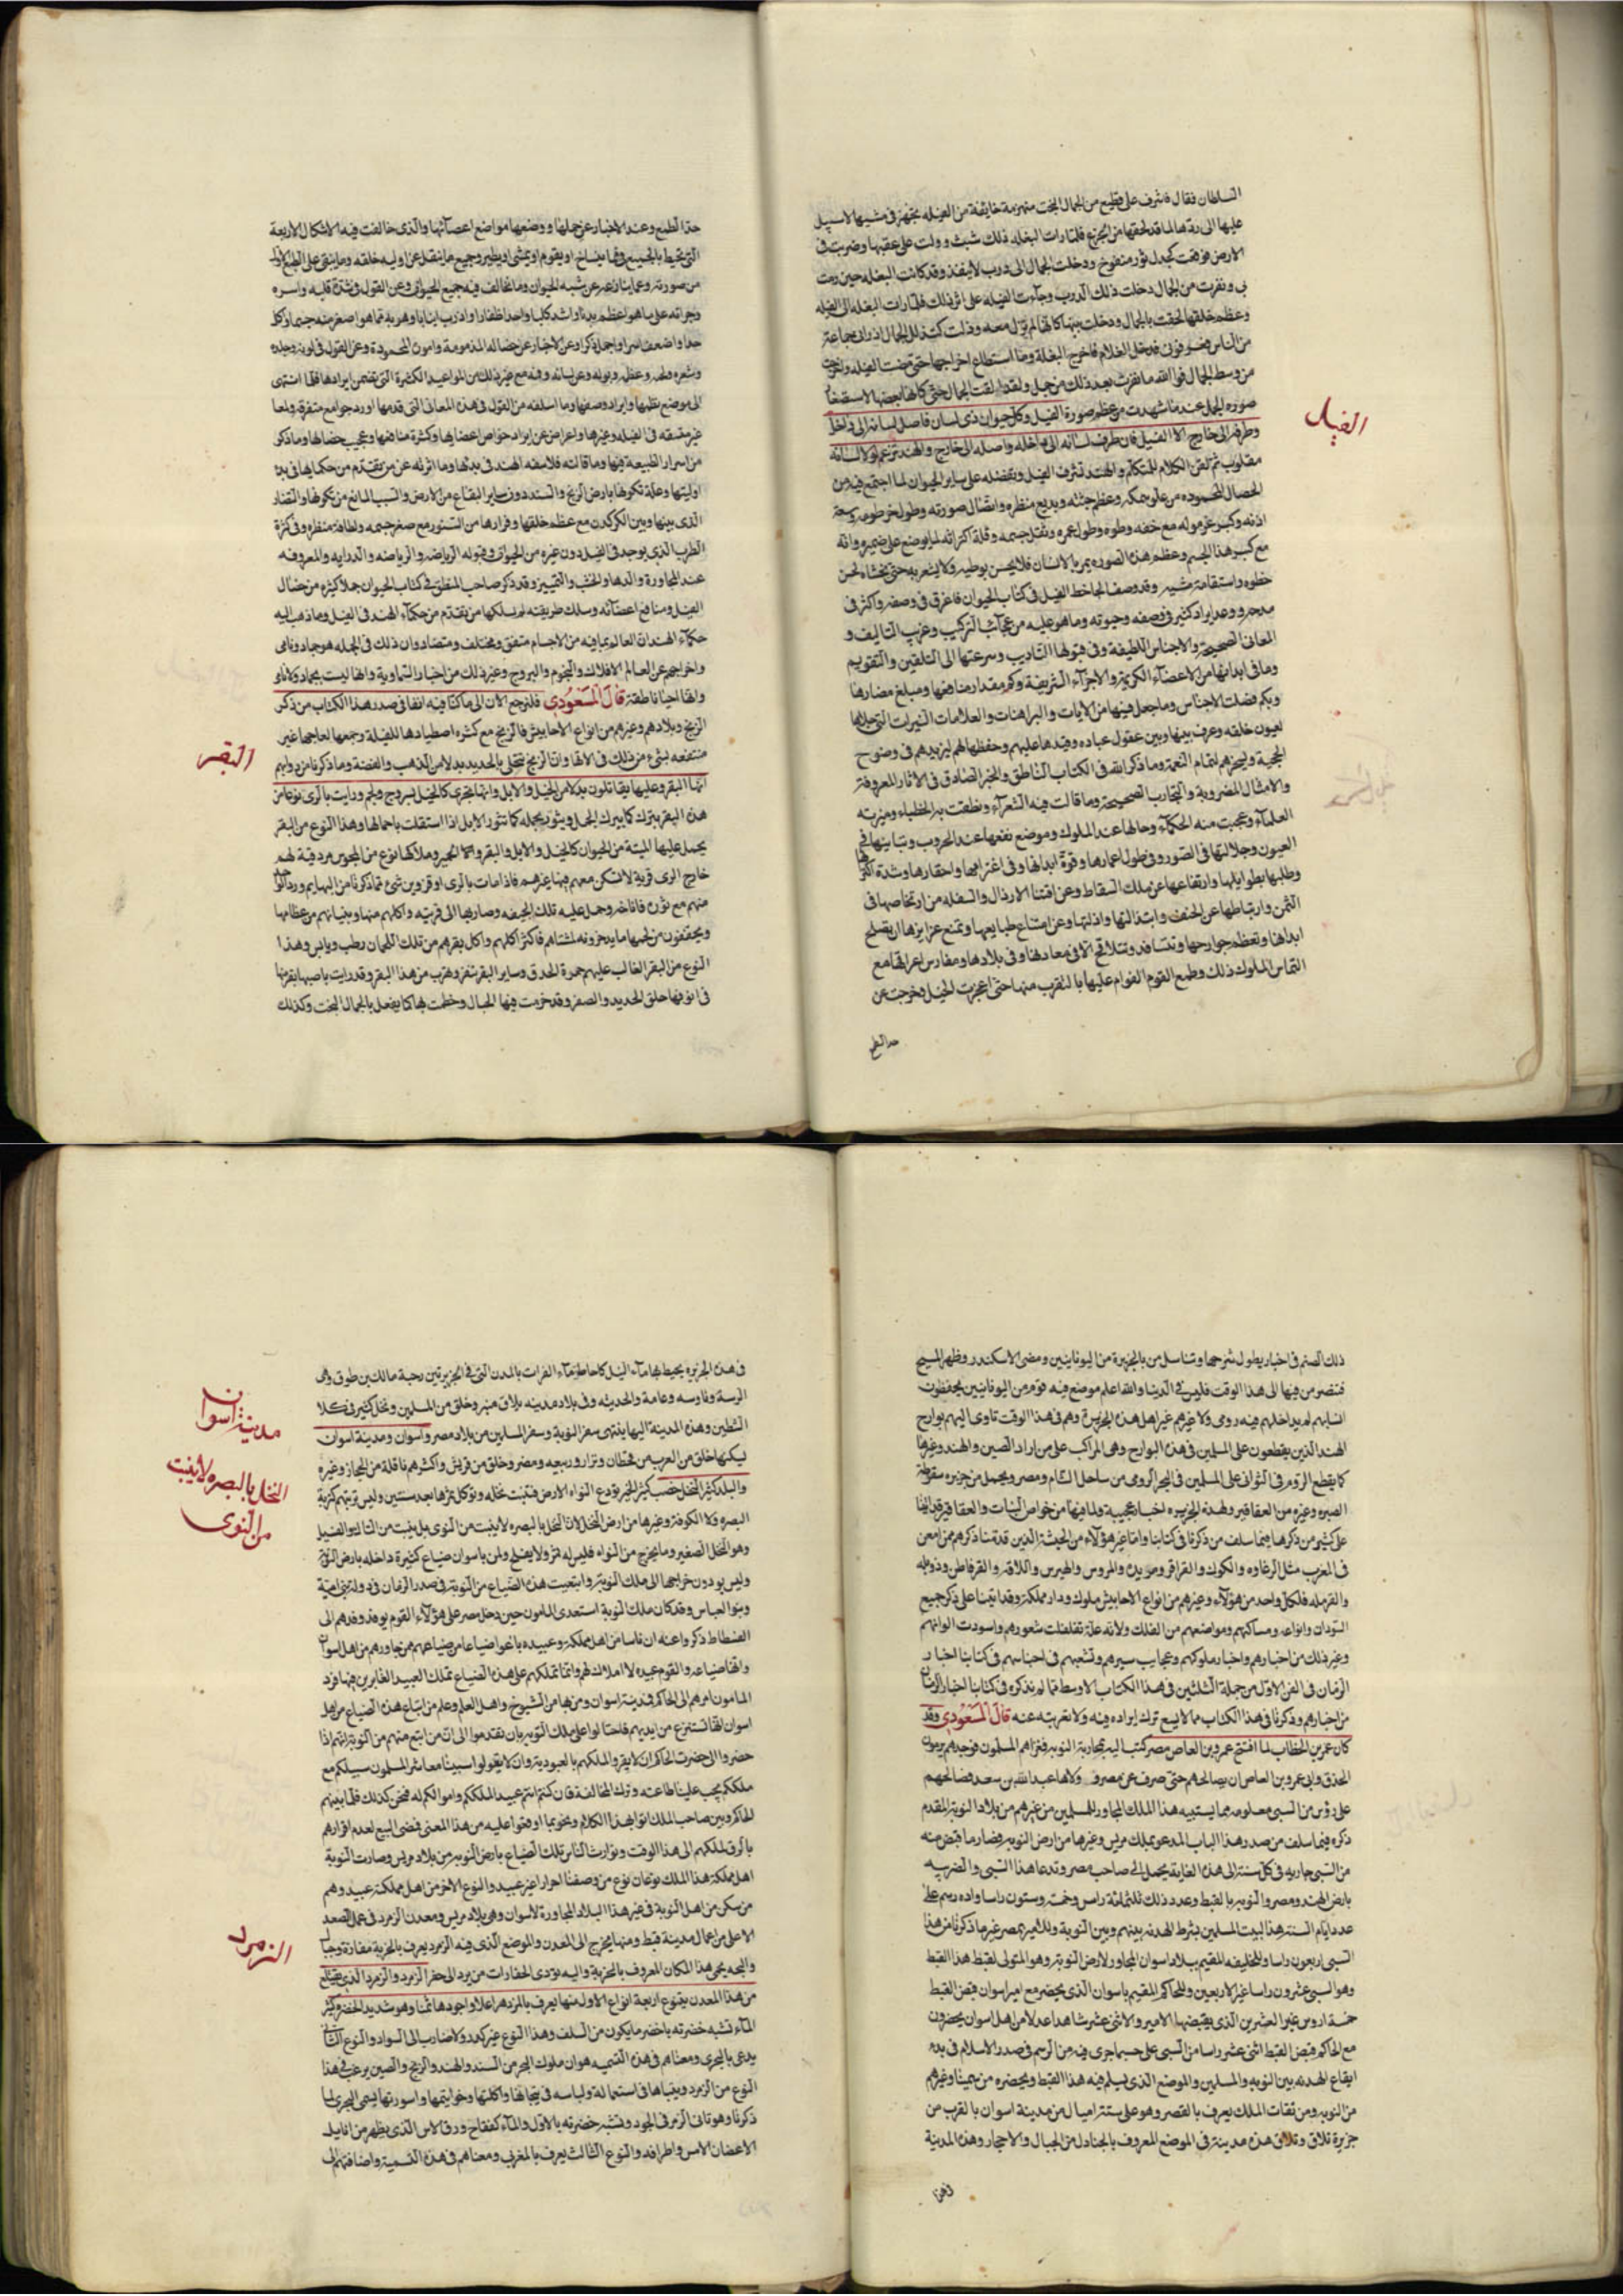 السلطان فقال فاشرف على قطيع من الجمال البخت منهزمة خايفة من الفيله تجهز في مشيها لا سبيل
عليها الى ردها لما قد لحقها من الجزع فلما رات البغله ذلك شبت وولت على عقبها وضربت في
الارض فوقعت كجدل ثور منفوخ ودخلت الجمال الى درب لا ينفذ وقد كانت البغله حين رمت
بي ونفرت من الجمال دخلت ذلك الدرب وجاءت الفيله على اثر ذلك فلما رات البغله الى الفيله
وعظم خلقتها لحقت بالجمال ودخلت بينها كانها لم تزل معه وذلت كذلك الجمال اذ راى جماعة
من الناس فدخل الغلام فاخرج البغلة وما استطاع اخراجها حتى مضت الفيله واخرجت
من وسط الجمال فوالله ما نفرت بعد ذلك من جمل ولقد الفت الجمال حتى كانها بعضها لاستصغار
صورة الجمل عندما شهدت من عظم صورة الفيل وكل حيوان ذي لسان فاصل لسانه الى داخل
الفيل
وطرفه الى خارج الا الفيل فان طرف لسانه الى داخله واصله الى خارج والهند تزعم لولا ان لسانه
مقلوب ثم لقن الكلام لتكلم والهند تشرف الفيل وتفضله على ساير الحيوان لما اجتمع فيه من
الخصال المحموده من علو سمكه وعظم جثته وبديع منظره واتصال صورته وطول خرطومه وسعة
اذنه وكبر غرموله مع خفه وطوه وطول عمره وثقل جسمه وقلة اكتراثه لما يوضع على ظهره وانه
مع كبر هذا الجسم وعظم هذه الصوره يمر بالانسان فلا يحس بوطيه ولا يشعر به حتى يغشاه لحسن
خطوه واستقامة مشيه وقد وصف الجاحظ الفيل في كتاب الحيوان فاغرق في وصفه واكثر في
مدحه وعد ايراد كثير في وصفه وحيوته وما هو عليه من عجائب التركيب وغريب التاليف و
المعانى الصحيحة والاجناس اللطيفة وفي قبولها التاديب وسرعتها الى التلقين والتقويم
وما في ابدانها من الاعضاء الكريمة والاجزاء الشريفة وكم مقدار منافعها ومبلغ مضارها
وبكم فضلت الاجناس وما جعل فيها من الايات والبراهنات والعلامات النيرات التي جلاها
لعيون خلقه وعرف بينها وبين عقول عباده وقيدها عليهم وحفظها لهم ليزيدهم في وضوح
الحجة ويسخرهم لتمام النعمة وما ذكر الله في الكتاب الناطق والخبر الصادق في الاثار المعروفة
والامثال المضروبة والتجارب الصحيحة وما قالت فيه الشعراء ونطقت به الخطباء وميزته
العلماء وعجبت منه الحكماء وحالها عند الملوك وموضع نفعها عند الحروب وتباينها في
العيون وجلالتها في الصدور وفي طول اعمارها وقوة ابدانها وفي اعتزامها واحقادها وشدة اكتراثها
وطلبها بطوايلها وارتفاعها عن ملك السقاط وعن اقتنا الارذال والسفله من ارتخاصها في
الثمن وارتباطها عن الخنف وابتذالتها واذلتها وعن امتناع طبايعها وتمنع غرايزها ان يصلح
ابدانها وتعظم جوارحها وتتسافد وتتلاقح الا في معادنها وفي بلادها ومغارس اعراقها مع
التماس الملوك ذلك وطمع القوم القوام عليها بالتقرب منها حتى اعجزت الحيل فخرجت عن
حد الطبع
حد الطبع وعند الاخبار عن حملها ووضعها مواضع اعضائها والذى خالفت فيه الاشكال الاربعة
التى تحيط بالجميع وفيما ينساح او يقوم او يمشى او يطير وجميع ما ينتقل عن اوليه خلقه وما يبقى على الطبع الاول
من صورته وعما ينازعه عن شبه الحيوان وما يخالف فيه جميع الحيوان وعن القول في شدة قلبه واسره
وجراته على ما هو اعظم بدنا واشد كلبا واحد اظفارا واذرب انيابا وهربه مما هو اصغر منه جسما وكل
حدا واضعف اسرا واجل ذكرا وعن الاخبار عن خصاله المذمومة واموره المحمودة وعن القول في لونه وجلده
وشعره ولحمه وعظمه وبوله وعن لسانه وفيه مع غير ذلك من المواعيد الكثيرة التى تضمن ايرادها فلما انتهى
الى موضع نظمها وايراد وصفها وما اسلفه من القول في هذه المعانى التى قدمها اورد جوامع متفرقه ولمعا
غير متسقه في الفيله وغيرها واعراض عن ايراد خواص اعضائها وكثرة منافعها وعجيب خصالها وما ذكر
من اسرار الطبيعة فيها وما قالته فلاسفه الهند في بدئها وما اثرته عن من تقدم من حكمائها في بدء
اوليتها وعلة تكونها بارض الزنج والسند دون ساير البقاع من الارض والسبب المانع من تكونها والتضاد
الذى بينها وبين الكركدن مع عظم خلقها وفرارها من السنور مع صغر جسمه ولطافة منظره وفي كثرة
الطرب الذى يوجد في الفيل دون غيره من الحيوان وقبوله الرياضه والدرايه والمعروفه
عند المجاورة والدها والخبث والتمييز وقد ذكر صاحب المنطق في كتاب الحيوان جملا كثيره من خصال
الفيل ومنافع اعضائه وسلك طريقته لم يسلكها من تقدم من حكماء الهند في الفيل وما ذهب اليه
حكماء الهند ان العالم بما فيه من الاجسام متفق ومختلف ومتضاد وان ذلك في الجمله هو جماد ونامى
واخراجهم عن العالم الافلاك والنجوم والبروج وغير ذلك من اخبار السماوية وانها ليست بجماد ولا نام
وانها احيا ناطقة قال المسعودى فلنرجع الان الى ما كنا فيه انفا في صدر هذا الكتاب من ذكر
الزنج وبلادهم وغيرهم من انواع الاحابيش فالزنج مع كثرة اصطيادها للفيلة وجمعها لعاجها غير
منتفعه بشئ من ذلك في الاتها وانما الزنج تتحلى بالحديد بدلا من الذهب والفضة وما ذكرنا من دوابهم
البقر
انها البقر وعليها يقاتلون بدلا من الخيل والابل وانها تجرى كالخيل بسروج ولجم ورايت بالرى نوعا من
هذه البقر يبرك كما يبرك الجمل ويثور بحمله كما تثور الابل اذا استقلت باحمالها وهذا النوع من البقر
يحمل عليها الميتة من الحيوان كالخيل والابل والبقر والحمير وملاكها نوع من المجوس مزدقية لهم
خارج الرى قرية لا يسكن معهم فيها غيرهم فاذا مات بالرى او قزوين شئ مما ذكرنا من البهايم ورد الواحد
منهم مع ثوره فاناخه وحمل عليه تلك الجيفه وصار بها الى قريته واكلهم منها وبنيانهم من عظامها
ويجففون من لحمها ما يدخرونه لمشتاهم فاكثر اكلهم واكل بقرهم من تلك اللحمان رطب ويابس وهذا
النوع من البقر الغالب عليهم حمرة الحدق وساير البقر تنفر وتهرب من هذا البقر وقد رايت باصبهان بقرا منها
في انوفها حلق الحديد والصفر وقد خزمت فيها الحبال وخطمت بها كما يفعل بالجمال البخت وكذلك
ذلك الصنم في اخبار يطول شرحها وتناسل من بالجزيرة من اليونانيين ومضى الاسكندر وظهر المسيح
فتنصر من فيها الى هذا الوقت فليس في الدنيا والله اعلم موضع فيه قوم من اليونانيين يحفظون
انسابهم لم يداخلهم فيه رومى ولا غيرهم غير اهل هذه الجزيرة وهم في هذا الوقت تاوى اليهم بوارج
الهند الذين يقطعون على المسلمين في هذه البوارج وهى المراكب على من اراد الصين والهند وغيرها
كما يقطع الروم في الشوانى على المسلمين في البحر الرومى من ساحل الشام ومصر ويحمل من جزيره سقوطره
الصبر وغيره من العقاقير ولهذه الجزيره اخبار عجيبة ولما فيها من خواص النبات والعقاقير قد اتينا
على كثير من ذكرها فيما سلف من ذكرنا في كتابنا واما غير هؤلاء من الحبشة الذين قدمنا ذكرهم ممن امعن
في المغرب مثل الزغاوه والكوكو والقراقر ومريدين والمروس والهبرس والقرماطن ودويله
والقرمله فلكل واحد من هؤلاء وغيرهم من انواع الاحابيش ملوك ودار مملكة وقد اتينا على ذكر جميع
السودان وانواعه ومساكنهم ومواضعهم من الفلك ولاية علة تفلفلت شعورهم واسودت الوانهم
وغير ذلك من اخبارهم واخبار ملوكهم وعجايب سيرهم وتشعبهم في اجناسهم في كتابنا اخبار
الزمان في الفن الاول من جملة الثلثين في هذا الكتاب الاوسط مما لم نذكره في كتابنا اخبار الزمان
من اخبارهم وذكرنا في هذا الكتاب مما لا يسع ترك ايراده فيه ولا تعريته عنه قال المسعودى وقد
كان عمر بن الخطاب لما افتتح عمرو بن العاص مصر كتب اليه بمحاربة النوبة فغزاهم المسلمون فوجدهم يرمون
الحدق وابى عمرو بن العاص ان يصالحهم حتى صرف عن مصر ووليها عبدالله بن سعد فصالحهم
على رؤس من السبى معلومة مما يسبيه هذا الملك المجاور للمسلمين من غيرهم من بلاد النوبة المقدم
ذكره فيما سلف من صدر هذا الباب المدعو بملك مريس وغيرها من ارض النوبه فصار ما قبض منه
من السبى جاريه في كل سنة الى هذه الغاية يحمل الى صاحب مصر وتدعا هذا السبى والضريبه
بارض الهند ومصر والنوبه بالقبط وعدد ذلك ثلثمائة راس وخمسة وستون راسا واراه رسم على
عدد ايام السنة هذا لبيت المسلمين بشرط الهدنه بينهم وبين النوبة وللامير بمصر غير ما ذكرنا من هذا
السبى اربعون راسا ولخليفته المقيم ببلاد اسوان المجاور لارض النوبة وهو المتولى لقبض هذا القبط
وهو السبى عشرون راسا غير الاربعين وللحاكم المقيم باسوان الذى يحضر مع امير اسوان قبض القبط
خمسة اروس غير العشرين الذى يقبضها الامير ولاثنى عشر شاهدا عدلا من اهل اسوان يحضرون
مع الحاكم قبض القبط اثنى عشر راسا من السبى على حسب ما جرى فيه من الرسم في صدر الاسلام في بدء
ايقاع الهدنه بين النوبه والمسلمين والموضع الذى يسلم فيه هذا القبط ويحضره من سمينا وغيرهم
من النوبه ومن ثقات الملك يعرف بالقصر وهو على ستة اميال من مدينة اسوان بالقرب من
جزيرة بلاق وبلاق هذه مدينة في الموضع المعروف بالجنادل من الجبال والاحجار وهذه المدينة
في هذه
في هذه الجزيره يحيط بها ماء النيل كاحاطة ماء الفرات بالمدن التى في الجزيرتين رحبة مالك بن طوق وهى
الرسة وفاوسه وعامة والحديثه وفى بلاد مدينه بلاق منبر وخلق من المسلمين ونخل كثير في كلا
الشطين وهذه المدينة اليها ينتهى سفن النوبة وسفن المسلمين من بلاد مصر واسوان ومدينة اسوان
مدينة اسوان
يسكنها خلق من العرب من قحطان ونزار وربيعه ومضر وخلق من قريش واكثرهم ناقلة من الحجاز وغيره
والبلد كثير النخل خصب كثير الخير تودع النواه الارض فتنبت نخله وتوكل ثمرها بعد سنتين وليس تربتهم كتربة
النخل بالبصره لا ينبت
من النوى
البصره ولا الكوفة وغيرها من ارض النخل لان النخل بالبصره لا ينبت من النوى بل ينبت من الثال والفسيل
وهو النخل الصغير وما يخرج من النواه فليس له ثمر ولا يفلح ولمن باسوان ضياع كثيرة داخله بارض النوبة
وليس يودون خراجها الى ملك النوبه وابتعيت هذه الضياع من النوبة في صدر الزمان في دولة بنى امية
وبنو العباس وقد كان ملك النوبة استعدى المامون حين دخل مصر على هؤلاء القوم بوفد وفدهم الى
الفسطاط ذكروا عنه ان ناسا من اهل مملكته وعبيده باعوا ضياعا من ضياعهم ممن جاورهم من اهل اسوان
وانها ضياعه والقوم عبيده لا املاك لهم وانما تملكهم على هذه الضياع تملك العبيد الغابرين فيها فرد
المامون امرهم الى الحاكم بمدينة اسوان ومن بها من الشيوخ واهل العلم وعلم من ابتاع هذه الضياع من اهل
اسوان انها تستنزع من ايديهم فاحتالوا على ملك النوبه بان تقدموا الى ان من ابتيع منهم من النوبة انهم اذا
حضروا الى حضرت الحاكم ان لا يقروا لملكهم بالعبوديه وان لا يقولوا سبيلنا معاشر المسلمون سبيلكم مع
ملككم يجب علينا طاعته وترك المخالفة فان كنتم انتم عبيد الملككم واموالكم له فنحن كذلك فلما بينهم
الحاكم وبين صاحب الملك اتوا بهذا الكلام ونحوه بما اوقفوا عليه من هذا المعنى فمضى البيع لعدم اقرارهم
بالرق لملكهم الى هذا الوقت وتوارث الناس تلك الضياع بارض النوبه من بلاد مريس وصارت النوبة
اهل مملكة هذا الملك نوعان نوع من وصفنا احرار غير عبيد والنوع الاخر من اهل مملكته عبيد وهم
من سكن من اهل النوبة في غير هذا البلاد المجاورة لاسوان وهى بلاد مريس ومعدن الزمرد في عمل الصعيد
الزمرد
الاعلى من اعمال مدينة قفط ومنها يخرج الى المعدن والموضع الذى فيه الزمرد يعرف بالخربة مفازة وجبال
والبجه تحمى هذا المكان المعروف بالخربة واليه تؤدى الخفارات من يرد الى حفر الزمرد والزمرد الذى يقتلع
من هذا المعدن يتنوع اربعة انواع الاول منها يعرف بالمر هو اعلا واجودها ثمنا وهو شديد الخضره كثير
الماء تشبه خضرته باخضر ما يكون من السلق وهذا النوع غير كدر ولا ضارب الى السواد والنوع الثانى
يدعى بالبحرى ومعناهم في هذه التسميه هو ان ملوك البحر من السند والهند والزنج والصين يرغب في هذا
النوع من الزمرد ويتباها في استعماله ولباسه في تيجانها واكلتها وخواتيمها واسورتها يسمى البحرى لما
ذكرنا وهو ثانى الزمرد في الجود وتشبه خضرته بالاول والماء كفقاح ورق الاس الذى يظهر من انابيك
الاغصان الاس واطرافه والنوع الثالث يعرف بالمغربى ومعناهم في هذه التسمية واضافتهم الى